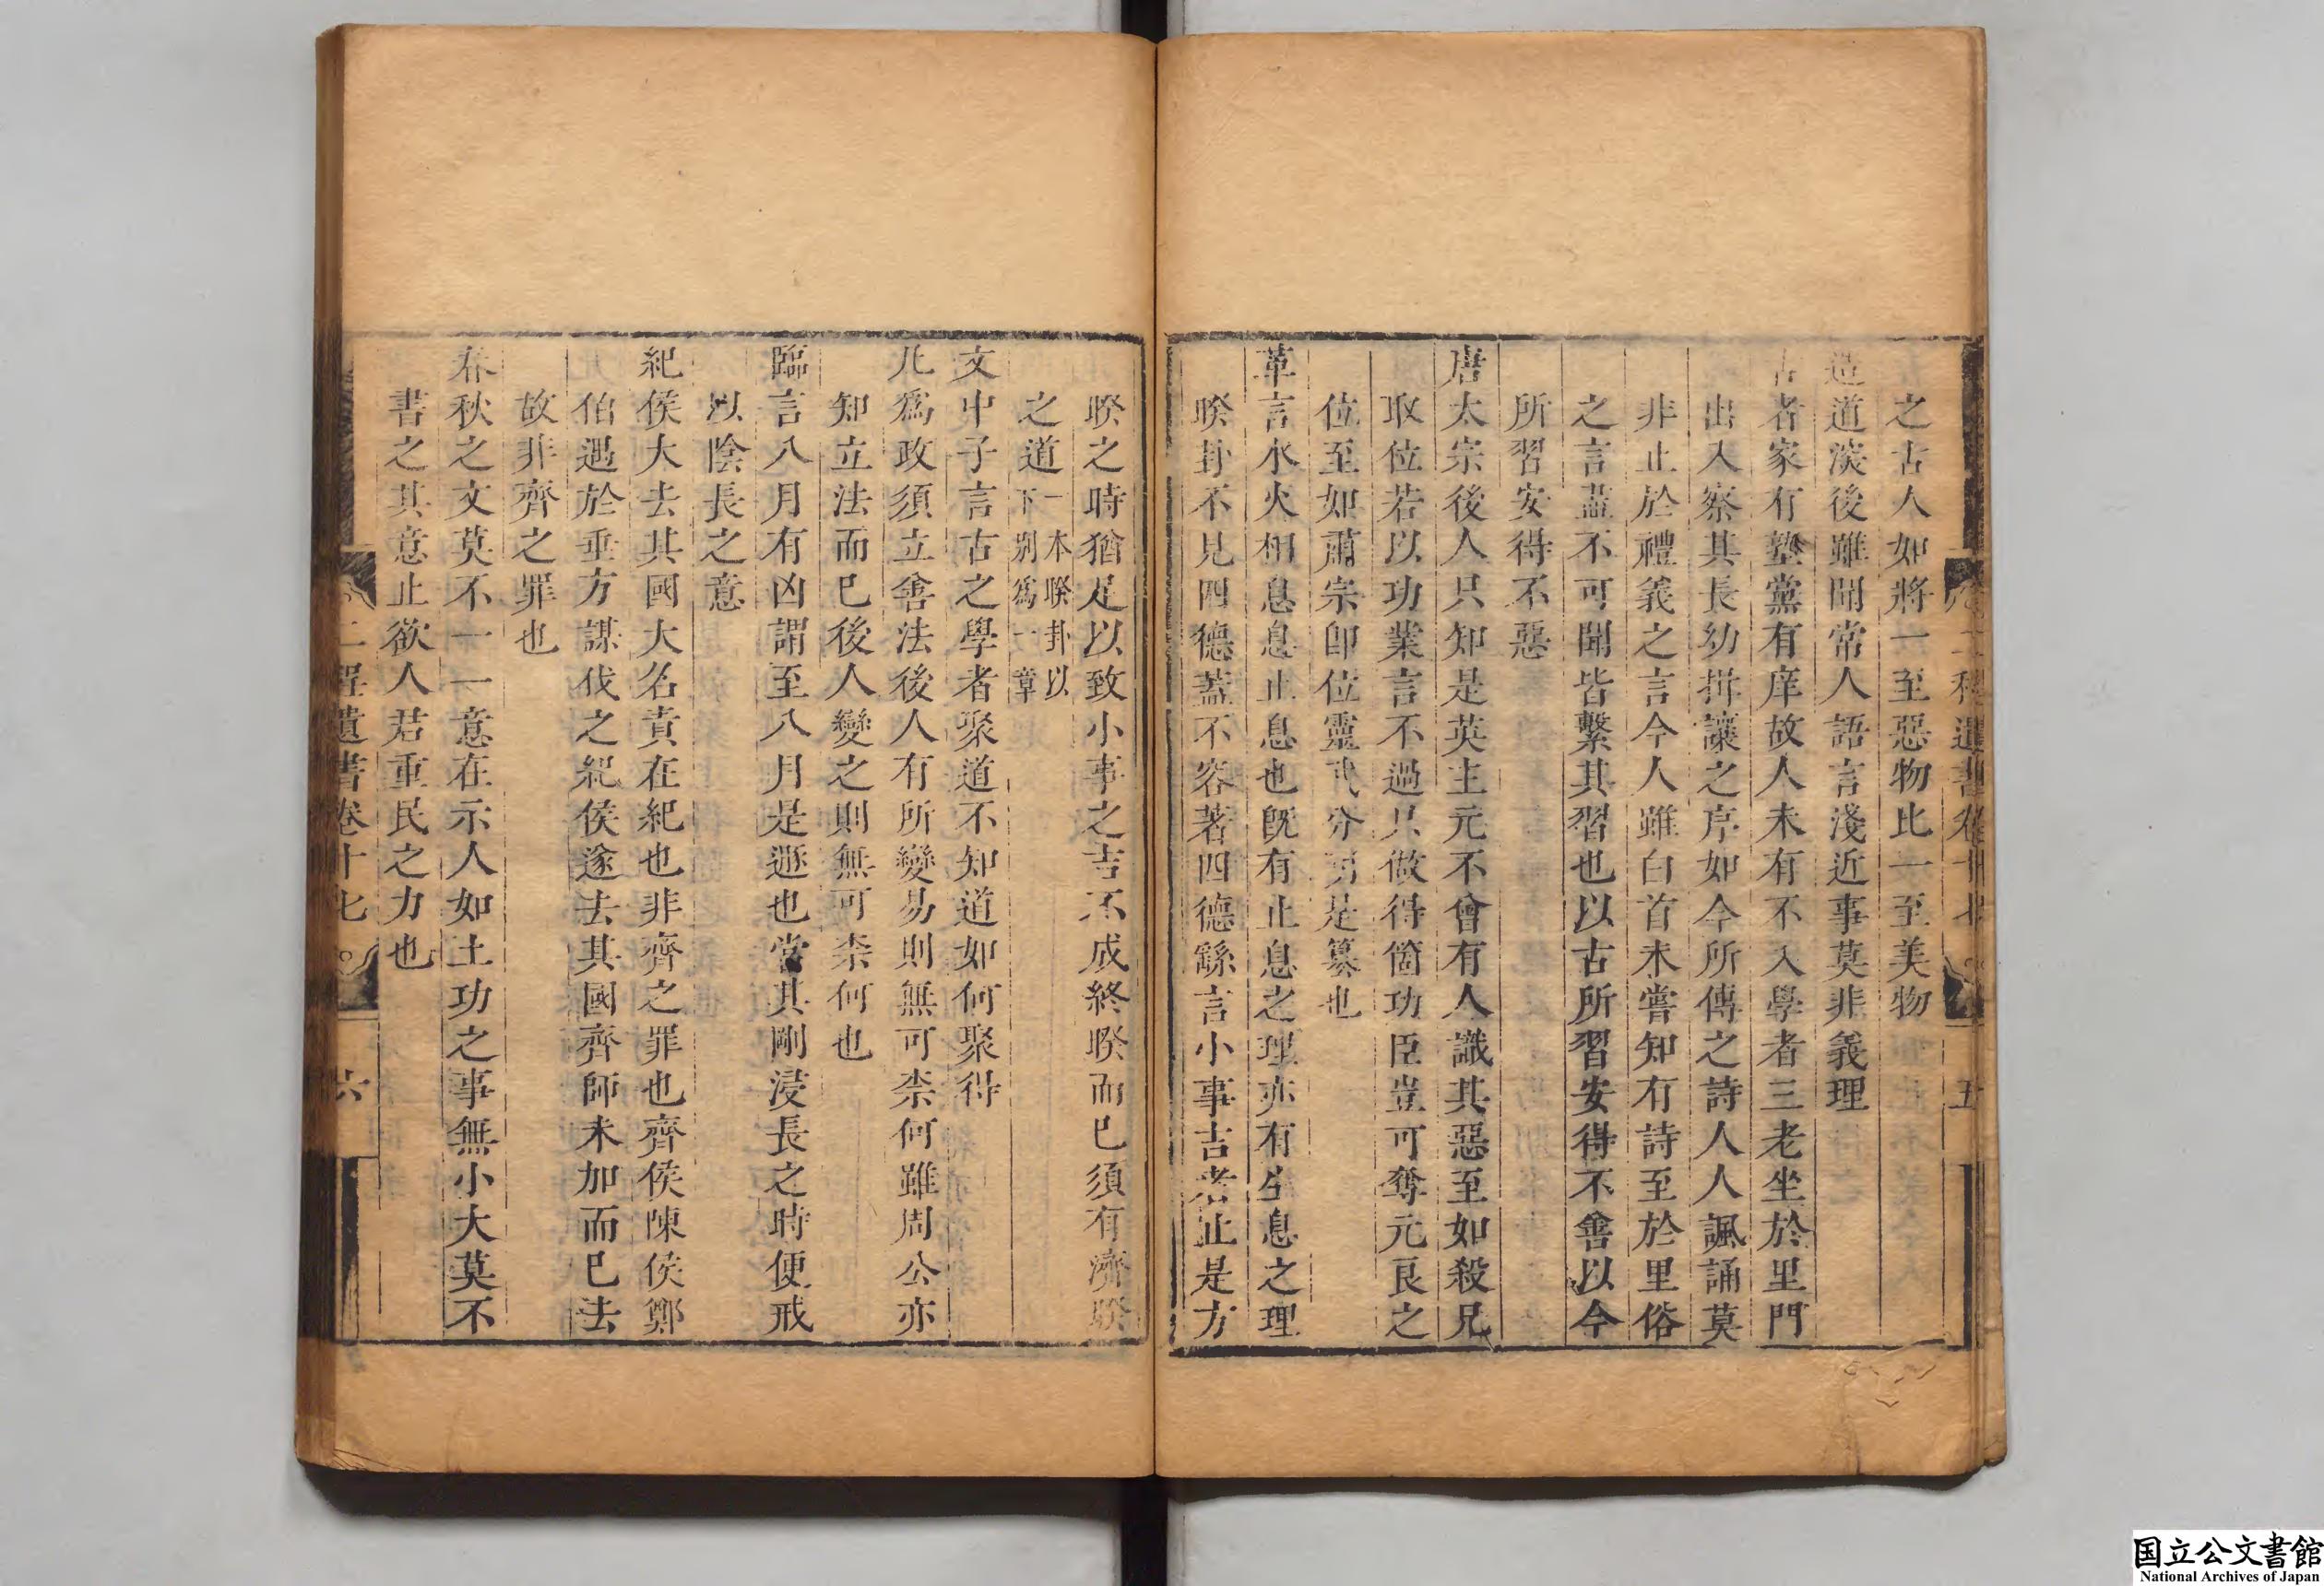 二程遺書卷十七 五
之古人如將一至惡物比一至美物
造道深後雖聞常人語言淺近事莫非義理
古者家有塾黨有庠故人未有不入學者三老坐於里門
出入察其長幼揖讓之序如今所傳之詩人人諷誦莫
非止於禮義之言今人雖白首未嘗知有詩至於里俗
之言蓋不可聞皆繫其習也以古所習安得不善以今
所習安得不惡
唐太宗後人只知是英主元不曾有人識其惡至如殺兄
取位若以功業言不過只做得箇功臣豈可奪元良之
位至如肅宗卽位靈武分明是篡也
革言水火相息息止息也旣有止息之理亦有生息之理
睽卦不見四德蓋不容著四德繇言小事吉者止是方
睽之時猶足以致小事之吉不成終睽而已須有濟睽
之道一本睽卦以下別爲一章
文中子言古之學者聚道不知道如何聚得
凡爲政須立善法後人有所變易則無可柰何雖周公亦
知立法而已後人變之則無可柰何也
臨言八月有凶謂至八月是遯也當其剛浸長之時便戒
以陰長之意
紀侯大去其國大名責在紀也非齊之罪也齊侯陳侯鄭
伯遇於垂方謀伐之紀侯遂去其國齊師未加而已去
故非齊之罪也
春秋之文莫不一一意在示人如土功之事無小大莫不
書之其意止欲人君重民之力也
二程遺書卷十七 六
国立公文書館
National Archives of Japan